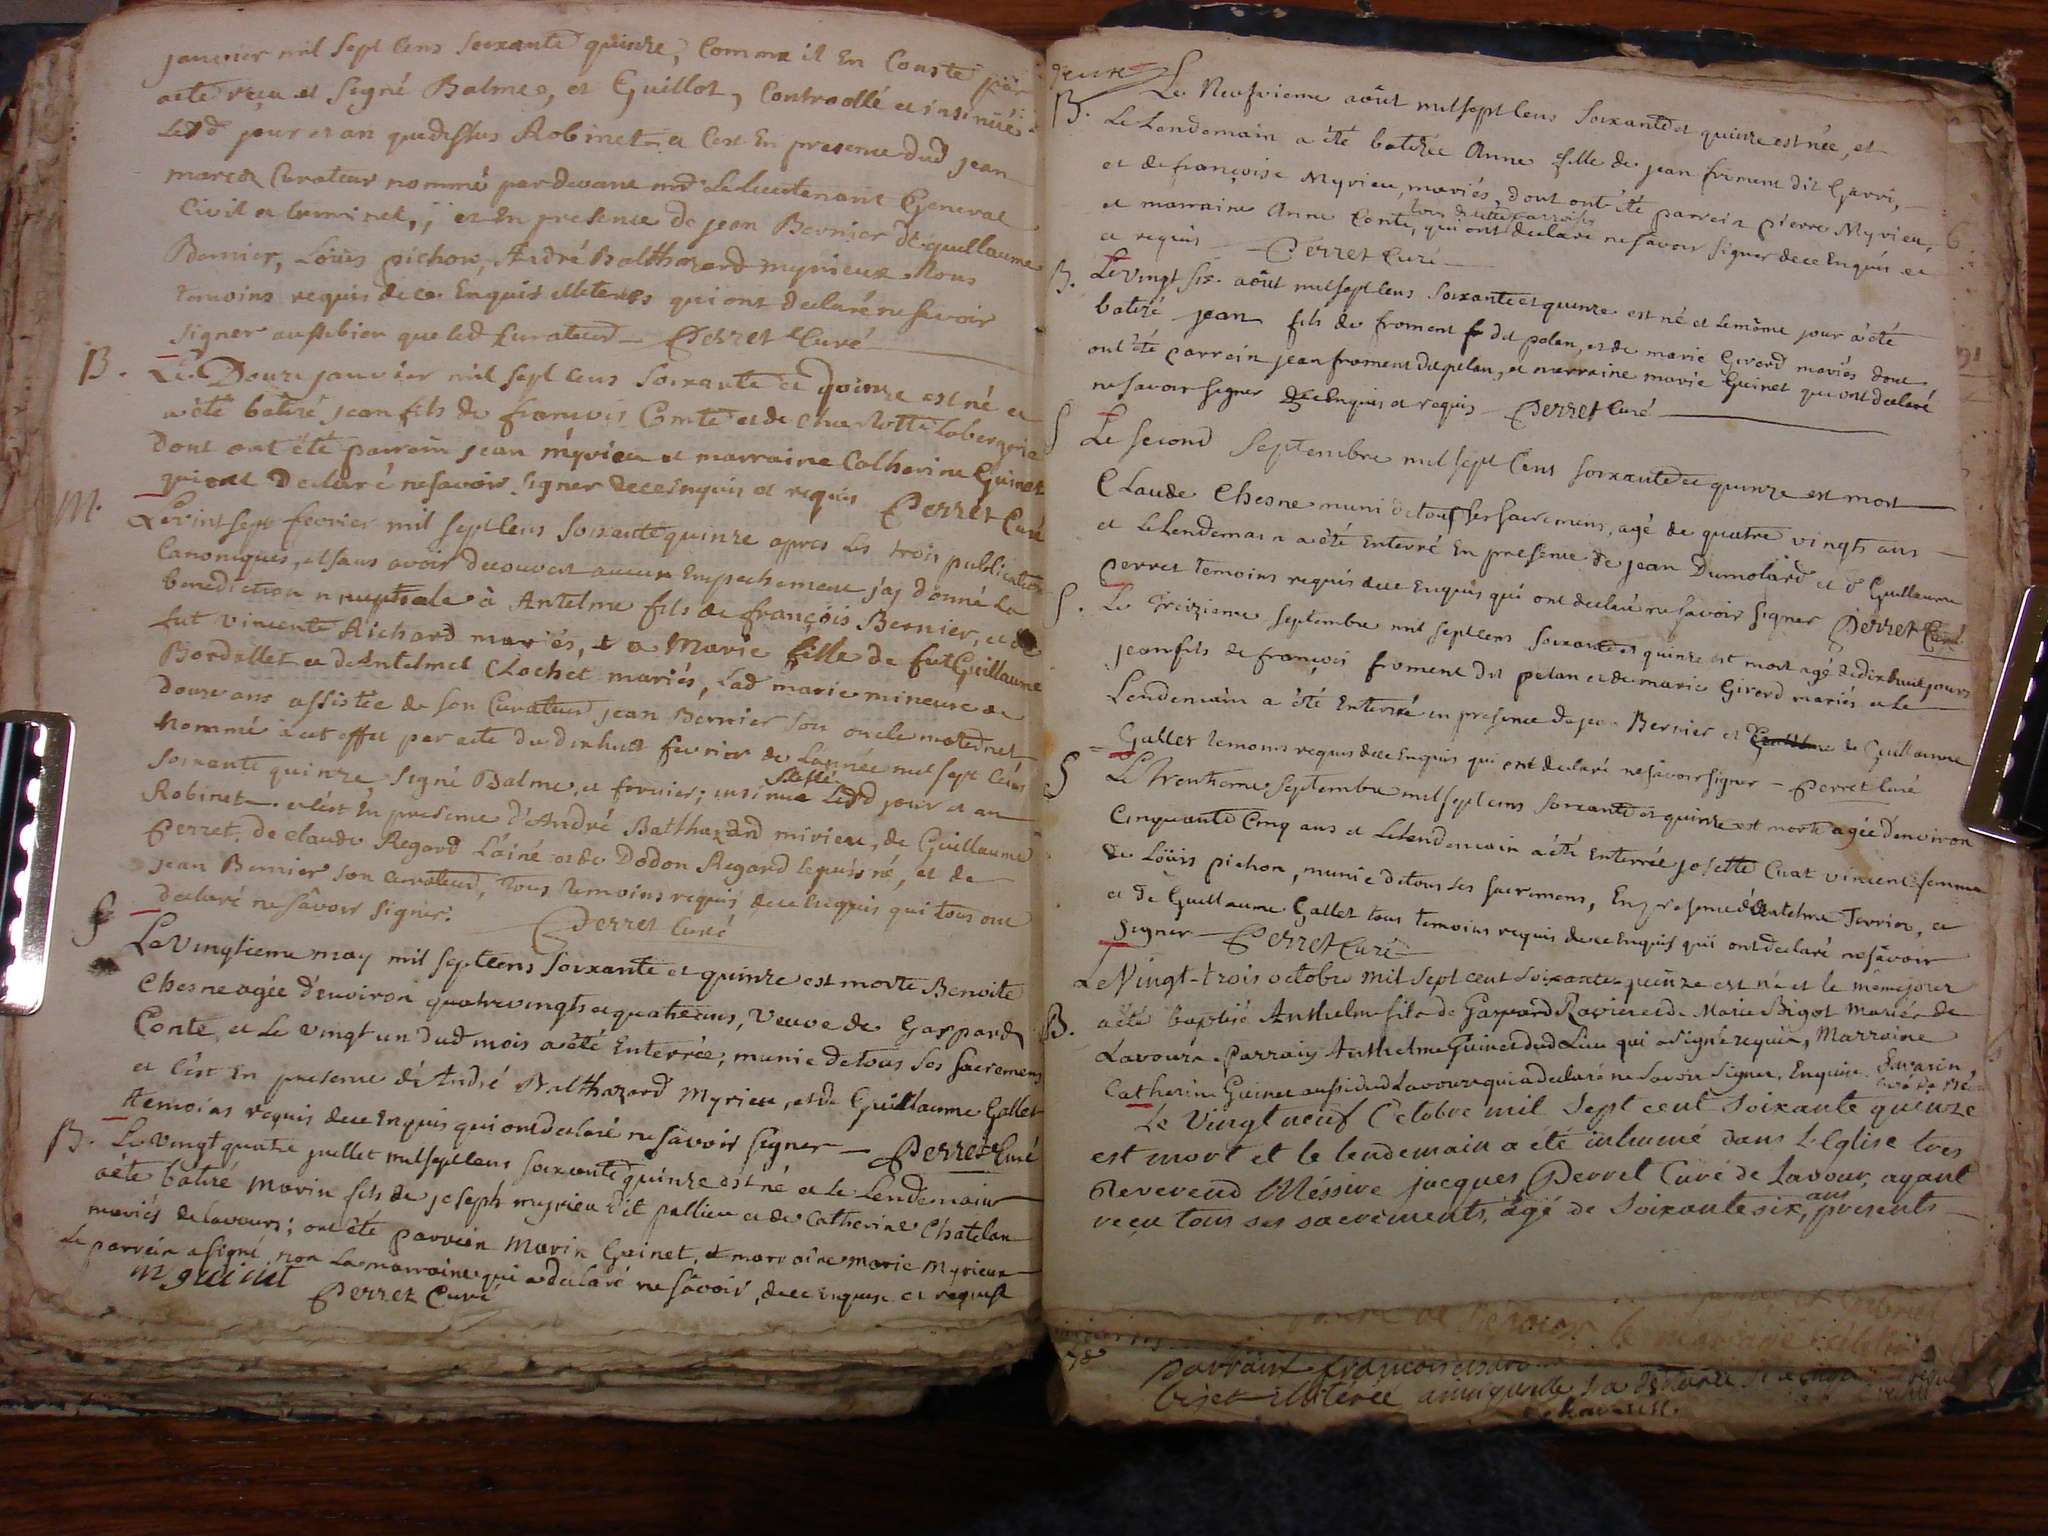 janvier mil sept cens soixante quinze, comme il en conste par
acte reçu et signé Balme, et Guillot, controollé et insinué
led jour et an que dessus Robinet et c'est en presence dud jean
curateur nommé par devant mr le lieutenant General
Civil et criminel, et en presence de jean Bernier de guillaume
Bernier, Loüis pichon, André Balthazard myrieux tous
temoins requis de ce enquis illiteres qui ont declaré ne savoir
signer aussi bien que led curateur — Perret Curé
B. Le Douze janvier mil sept cens soixante et quinze est né et
a été batisé jean fils de françois Comte et de
dont ont été parrein jean myrieu et marraine Catherine Guinet
qui ont declaré ne savoir signer de ce enquis et requis Perret Curé
M. Le vint sept fevrier mil sept cens soixante quinze apres les trois publications
Canoniques, et sans avoir decouvert aucun empechement j'ay donné la
benediction nuptiale à Antelme fils de françois Bernier, et de
fut vincente Richard mariés, et a Marie fille de fut Guillaume
Bordellet et de Antelmet Clochet mariés, lad marie mineure de
douze ans assistée de son Curateur jean Bernier son oncle
nommé à cet effet par acte du dixhuit fevrier de l'année mil sept cens
soixante quinze, signé Balme, et fornier; insinué scellé led jour et an
Robinet et c'est en presence d'André Balthazard mirieu, de Guillaume
Perret, de claude Regard l'ainé et de Dodon Regard le puisné, et de
jean Bernier son curateur, tous temoins requis de ce enquis qui tous ont
declaré ne sâvoir signer. Perret Curé
S Le vingtieme may mil sept cens soixante et quinze est morte Benoite
Chesne agée d'environ quatrevingts et quatre ans, veuve de Gaspard
Conte, et le vingt un dud mois a été enterrée, munie de tous ses sacremens
et c'est en presence d'André Balthazard Myrieu, et de Guillaume Gallet
temoins requis de ce enquis qui ont declaré ne sâvoir signer — Perret Curé
B. Le vingt quatre juillet mil sept cens soixante quinze est né et le lendemain
a été batisé Marin fils de joseph myrieu dit pallieu et de Catherine Chatelan
mariés de lavours; ont été parrein Marin Guinet, et marraine marie Myrieux
le parrein a signé non la marraine qui a declaré ne sâvoir, de ce enquise et requise
mguinet Perret Curé
B. Le Neufvieme août mil sept cens soixante et quinze est née, et
le lendemain a été batisée Anne fille de jean froment dit Garvi,
et de françoise Myrieu, mariés, dont ont été parrein pierre Myrieu,
et marraine Anne Conte, tous de cette parroisse qui ont declaré ne savoir signer de ce enquis et
et requis — Perret Curé —
B. Le vingt six août mil sept cens soixante et quinze est né et le même jour a été
batisé jean fils de froment dit pelan, et de marie Girerd mariés dont
ont été parrein jean froment dit pelan, et marraine marie Guinet qui ont declaré
ne savoir signer de ce enquis et requis — Perret Curé —
S Le second Septembre mil sept cens soixante et quinze est mort
Claude Chesne muni de tous ses sacremens, agé de quatre vingts ans —
et le lendemain a été enterré en presence de jean Dumolard et de Guillaume
perret temoins requis de ce enquis qui ont declaré ne savoir signer Perret Curé
S. Le treizieme septembre mil sept cens soixante et quinze est mort agé de dix huit jours
jean fils de françois froment dit pelan et de marie Girerd mariés et le
lendemain a été enterré en presence de jean Bernier et de Guillaume
Gallet temoins requis de ce enquis qui ont declaré ne sâvoir signer — Perret Curé
S Le trentieme septembre mil sept cens soixante et quinze est morte agée d'environ
cinquante cinq ans et le lendemain a été enterrée josette Cuat vincent femme
de Loüis pichon, munie de tous ses sacremens, en presence d'Antelme Ferrier, et
et de Guillaume Gallet tous temoins requis de ce enquis qui ont declaré ne sâvoir
signer — Perret Curé —
B. Le Vingt-trois octobre mil sept cent soixante quinze est né et le même jour
a été baptisé Anthelme fils de Gaspard Raviere et de Marie Bigot mariés de
Lavours. Parrain Anthelme Guinet dud Lieu qui a signé requis, Marraine
Catherine Guinet aussi dud Lavours qui a declaré ne savoir signer, Enquise.
Le Vingt neuf Octobre mil sept cent soixante quinze
est mort et le lendemain a été inhumé dans L'Eglise tres
Reverend Méssire jacques Perret Curé de Lavour, ayant
reçu tous ses sacrements, âgé de soixante six ans, presents —
parrain françois